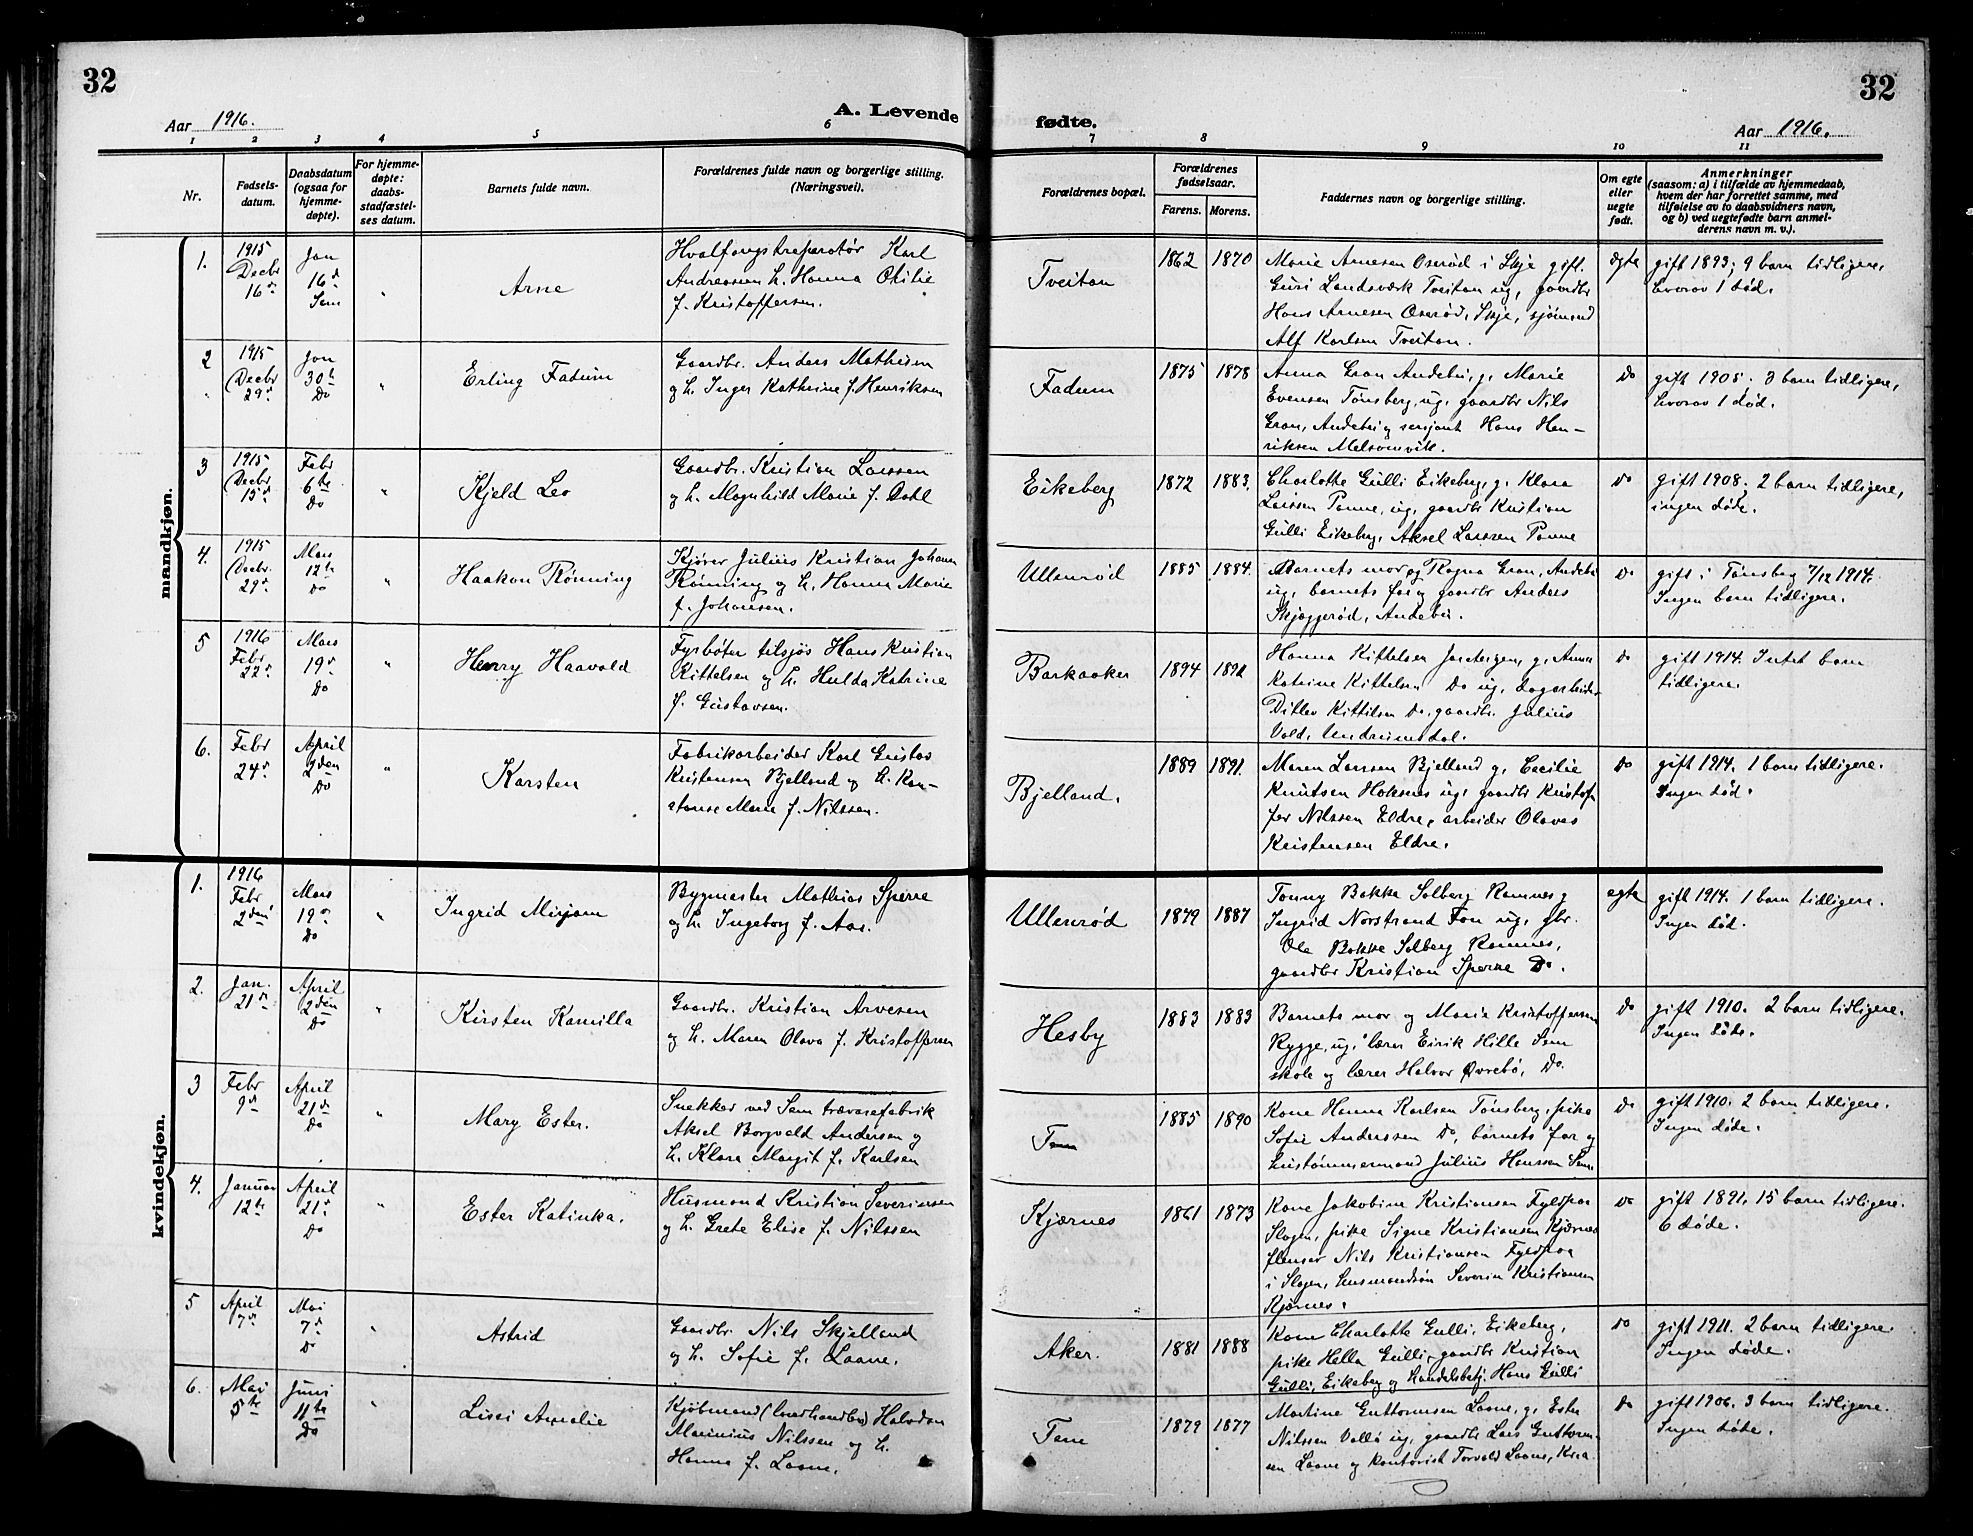 32
32
Aar 1916.
A. Levende
fødte.
Aar 1916.
1 2 3 4 5 6 7 8 9 10 11
Nr.
Fødsels-
datum.
Daabsdatum
(ogsaa for
hjemme-
døpte).
For hjemme-
døpte:
daabs-
stadfæstel-
ses datum.
Barnets fulde navn.
Forældrenes fulde navn og borgerlige stilling.
(Næringsvei).
Forældrenes bopæl.
Forældrenes
fødselsaar.
Farens. Morens.
Faddernes navn og borgerlige stilling.
Om egte
eller
uegte
født.
Anmerkninger
(saasom: a) i tilfælde av hjemmedaab,
hvem der har forrettet samme, med
tilføielse av to daabsvidners navn,
og b) ved uegtefødte barn anmel-
derens navn m. v.).
mandkjøn.
1.
1915
Decbr
16de
Jan
16de
Sem
"
Arne
Hvalfangstreparatør Karl
Andreassen h. Hanna Otilie
f. Kristoffersen.
Tveitan
1862 1870
Marie Arnesen Oserød i Skje gift.
Guri Landsværk Tveitan ug, gaardbr
Hans Arnesen Oserød, Skje, sjømand
Alf Karlsen Tveitan.
egte
gift 1893; 9 barn tidligere,
hvorav 1 død.
2
1915
Decbr
29de
Jan
30te
Do
"
Erling Fadum
Gaardbr. Anders Mathisen
og h. Inger Kathrine f. Henriksen
Fadum
1875 1878
Anna Gran Andebu, g, Marie
Evensen Tønsberg, ug, gaardbr Nils
Gran, Andebu og sersjant Hans Hen-
riksen Melsomvik.
Do
gift 1905. 3 barn tidligere,
hvorav 1 død.
3
1915
Decbr
15de
Febr
6te
Do
"
Kjeld Leo
Gaardbr. Kristian Larssen
og h. Magnhild Marie f. Dahl
Eikeberg
1872 1883.
Charlotte Gulli Eikeberg, g. Klara
Larssen Tanne, ug, gaardbr Kristian
Gulli Eikeberg, Aksel Larssen Tanne
Do
gift 1908. 2 barn tidligere,
ingen døde.
4.
1915
Decbr.
29de
Mars
12te
Do
"
Haakon Rønning
Kjører Julius Kristian Johansen
Rønning og h. Hanna Marie
f. Johansen.
Ullenrød
1885 1884.
Barnets mor og Ragna Gran, Andebu
ug, barnets far og gaardbr Anders
Skjeggerød, Andebu.
Do
gift i Tønsberg 7/12 1914.
Ingen barn tidligere.
5
1916
Febr
22de
Mars
19de
Do
"
Henry Haavald
Fyrbøter tilsjøs Hans Kristian
Kittelsen og h. Hulda Katrine
f. Gustavsen.
Barkaaker
1894 1892
Hanna Kittelsen Jareteigen, g, Anna
Katrine Kittelsen Do ug, dagarbeider
Ditlev Kittelsen Do, gaardbr. Julius
Vold, Undrumsdal.
Do
gift 1914. Intet barn
tidligere.
6.
Febr
24de
April
2den
Do
"
Karsten
Fabrikarbeider Karl Gustav
Kristensen Bjelland og h. Kon-
stanse Marie f. Nilssen.
Bjelland.
1889 1891.
Maren Larssen Bjelland g, Cecilie
Knutsen Haksnes ug, gaardbr Kristof-
fer Nilssen Eldre, arbeider Olavus
Kristensen Eldre.
Do
gift 1914. 1 barn tidligere.
Ingen død.
kvindekjøn.
1.
1916
Febr
2den
Mars
19de
Do
"
Ingrid Mirjam
Bygmester Mathias Sperre
og h. Ingeborg f. Aas.
Ullenrød
1879 1887
Tonny Bakke Solberg Ramnes g
Ingrid Norstrand Fon ug, gbr.
Ole Bakke Solberg Ramnes,
gaardbr Kristian Sperre Do.
egte
gift 1914. 1 barn tidligere.
Ingen død.
2.
Jan.
21de
April
2den
Do
"
Kirsten Kamilla
Gaardbr. Kristian Arvesen
og h. Maren Olava f. Kristoffersen
Hesby
1883 1883
Barnets mor og Marie Kristoffersen
Rygge, ug, lærer Eirik Hille Sem
skole og lærer Halvor Øvrebø, Do.
Do
gift 1910. 2 barn tidligere.
Ingen døde.
3
Febr
9de
April
21de
Do
"
Mary Ester.
Snekker ved Sem trævarefabrik
Aksel Borgvald Andersen og
h. Klara Margit f. Karlsen
Tem
1885 1890
Kone Hanna Karlsen Tønsberg, pike
Sofie Anderssen Do, barnets far og
hustømmermand Julius Hanssen Sem
Do
gift 1910. 2 barn tidligere.
Ingen døde.
4.
Januar
12te
April
21de
Do
"
Ester Katinka.
Husmand Kristian Severinsen
og h. Grete Elise f. Nilssen
Kjærnes
1861 1873
Kone Jakobine Kristiansen Fyldpaa
Slagen, pike Signe Kristiansen Kjærnes
flenser Nils Kristiansen Fyldpaa
i Slagen, husmandsøn Severin Kristiansen
Kjærnes.
Do
gift 1891. 15 barn tidligere.
6 døde.
5
April
7de
Mai
7de
Do
"
Astrid
Gaardbr. Nils Skjelland
og h. Sofie f. Laane.
Aker.
1881 1888
Kone Charlotte Gulli, Eikeberg,
pike Hella Gulli, gaardbr Kristian
Gulli, Eikeberg og handelsbetj. Hans Gulli
Do
gift 1911. 2 barn tidligere.
Ingen døde.
6.
Mai
5te
Juni
11te
Do
"
Lissi Amalie
Kjøbmand (landhandler) Halvdan
Marinius Nilssen og h.
Hanna f. Laane.
Tem
1879 1877
Martine Guttormsen Laane, g, Ester
Nilssen Vallø ug, gaardbr Lars Guttorm-
sen Laane og kontorist Torvald Laane, Krea
Do
gift 1906. 3 barn tidligere.
Ingen døde.